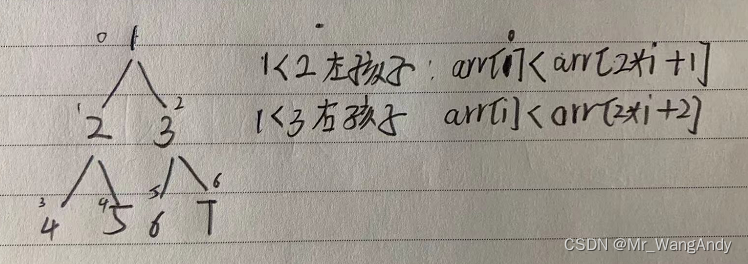 0 1
1<2 左孩子: arr[i]<arr[2*i+1]
1 2 3 2
1<3 右孩子 arr[i]<arr[2*i+2]
3 4 4 5 5 6 6 7
CSDN @Mr_WangAndy